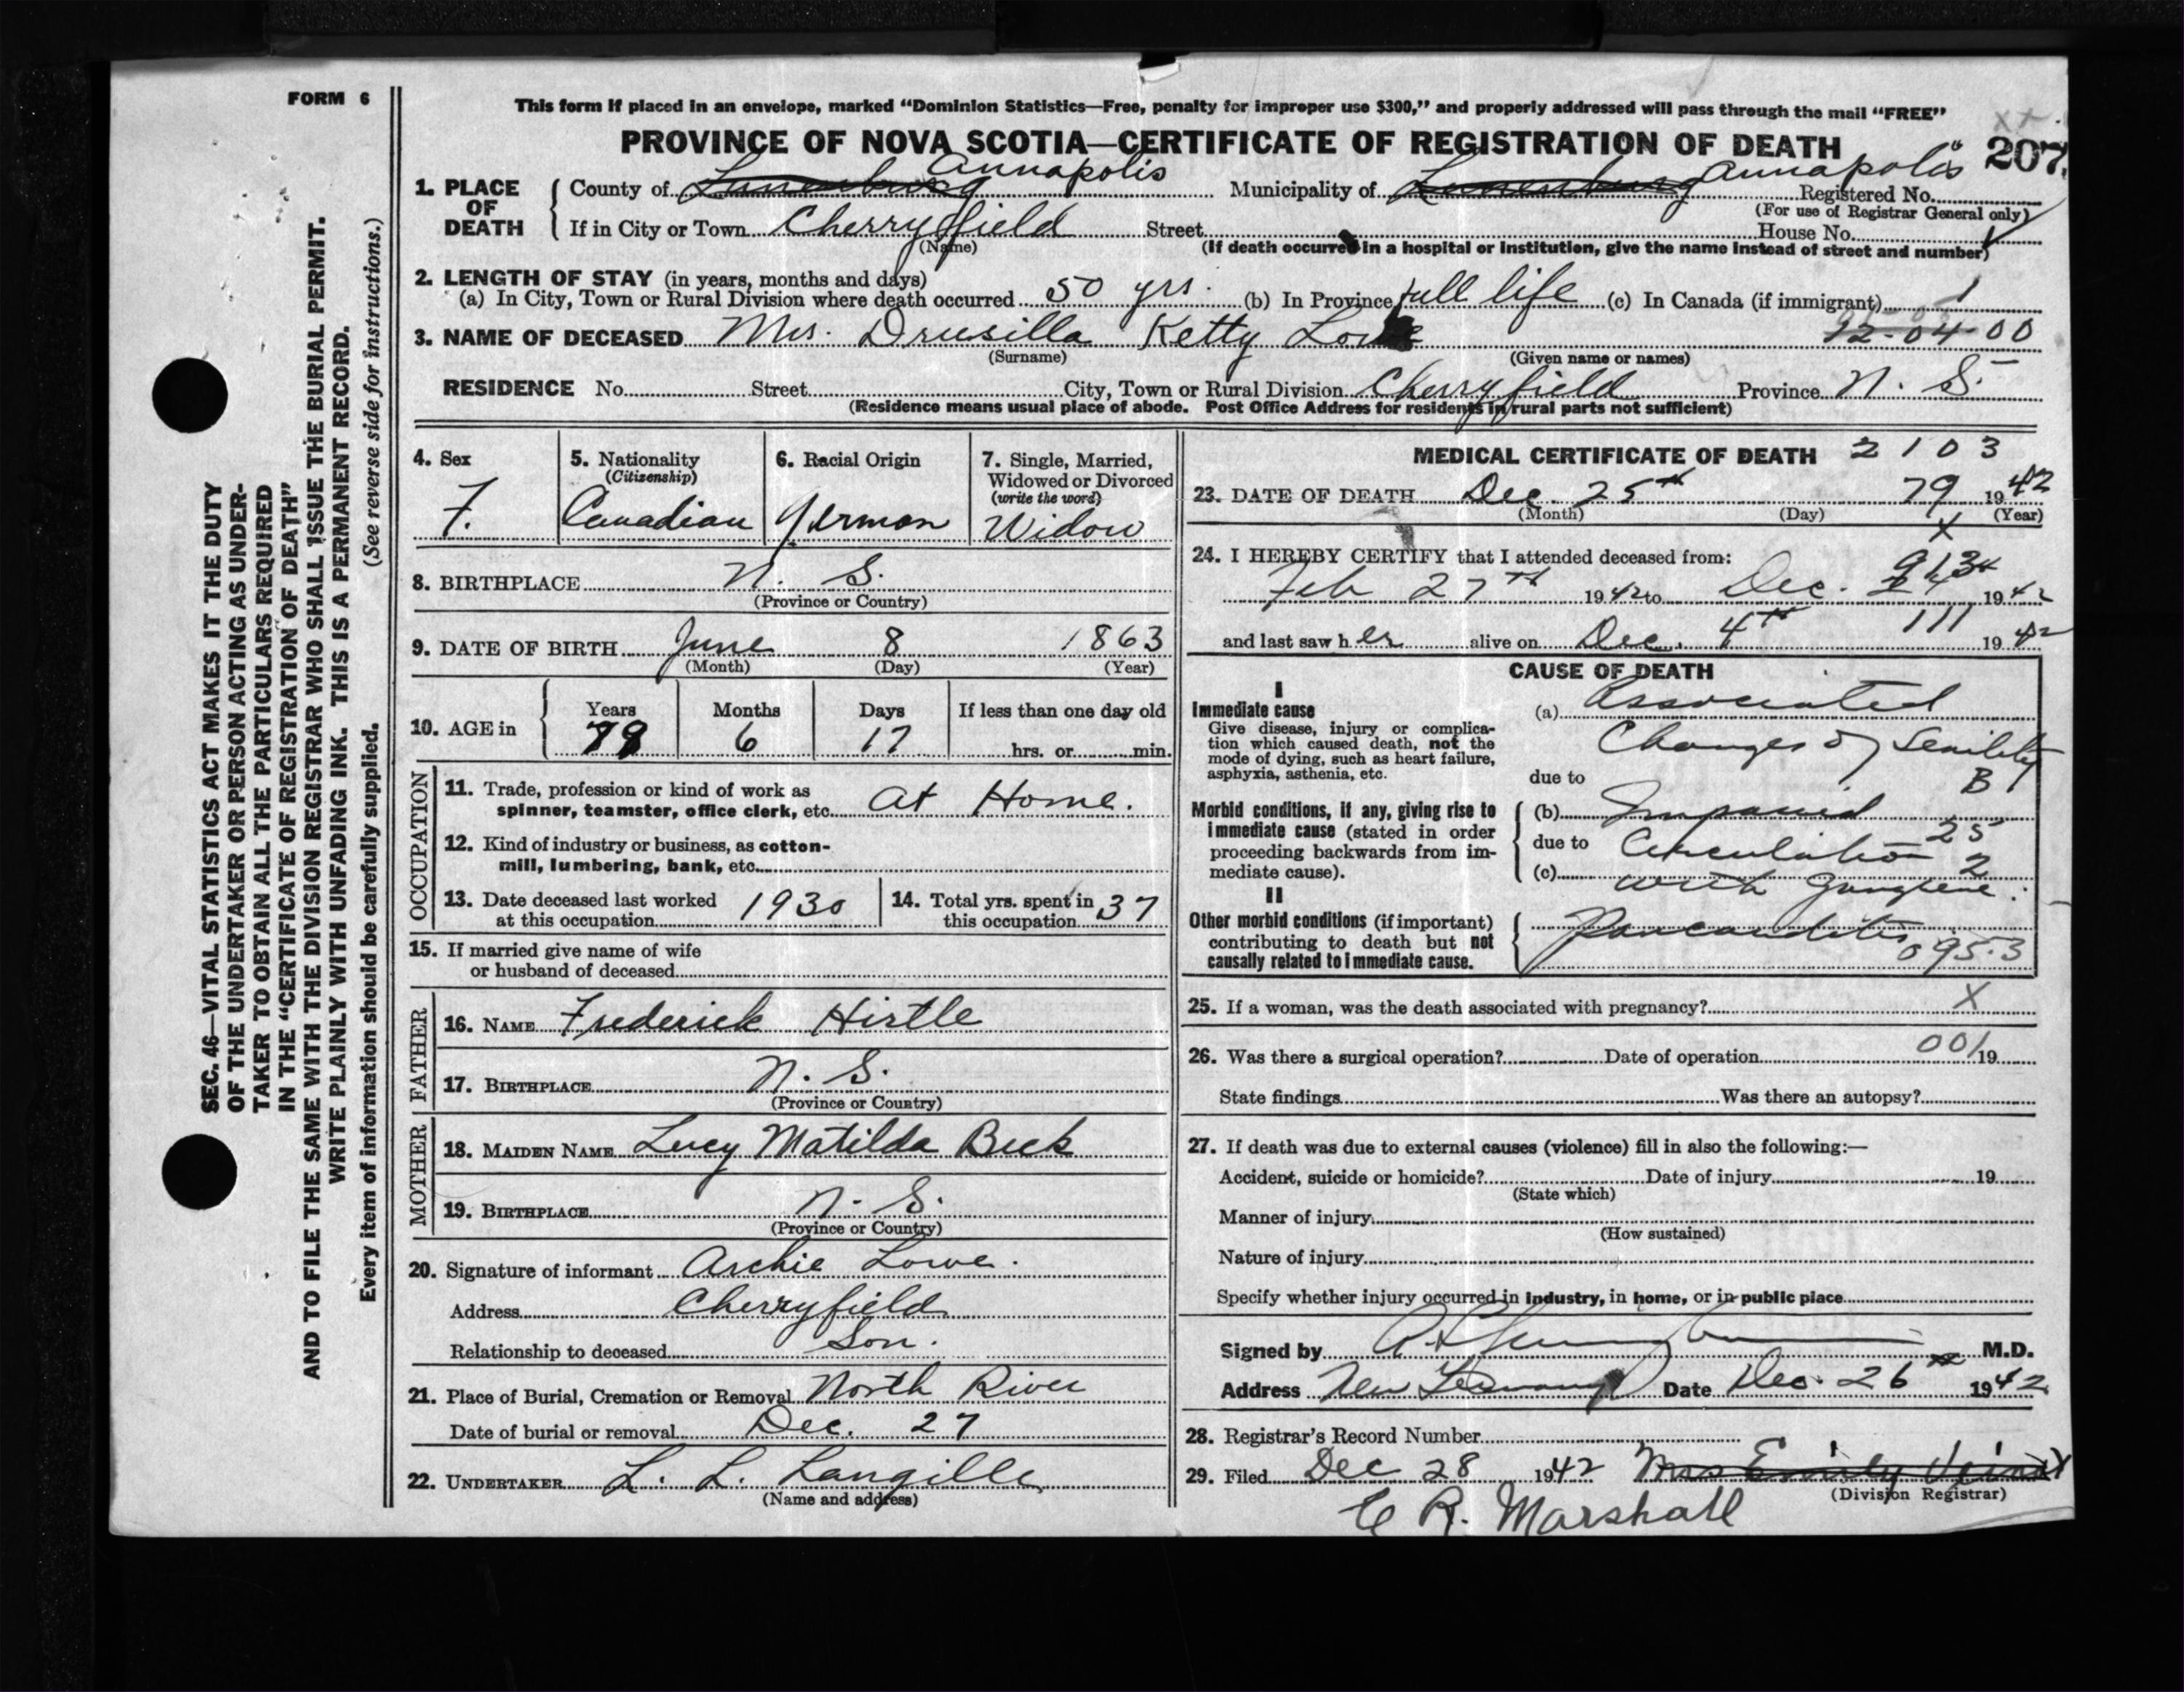 FORM 6
This form if placed in an envelope, marked “Dominion Statistics—Free, penalty for improper use $300,” and properly addressed will pass through the mail “FREE”
PROVINCE OF NOVA SCOTIA—CERTIFICATE OF REGISTRATION OF DEATH
207
1. PLACE OF DEATH
County of Lunenburg Annapolis Municipality of Lunenburg Annapolis Registered No.
(For use of Registrar General only)
If in City or Town Cherryfield Street House No.
(Name) (If death occurred in a hospital or institution, give the name instead of street and number)
2. LENGTH OF STAY (in years, months and days)
(a) In City, Town or Rural Division where death occurred 50 yrs. (b) In Province full life (c) In Canada (if immigrant) 1
3. NAME OF DECEASED Mrs. Drusilla Ketty Lowe 92-04-00
(Surname) (Given name or names)
RESIDENCE No. Street City, Town or Rural Division Cherryfield Province N. S.
(Residence means usual place of abode. Post Office Address for residents in rural parts not sufficient)
4. Sex
F.
5. Nationality
(Citizenship)
Canadian
6. Racial Origin
German
7. Single, Married, Widowed or Divorced
(write the word)
Widow
8. BIRTHPLACE N. S.
(Province or Country)
9. DATE OF BIRTH June 8 1863
(Month) (Day) (Year)
10. AGE in
Years Months Days If less than one day old
79 6 17 hrs. or min.
OCCUPATION
11. Trade, profession or kind of work as
spinner, teamster, office clerk, etc. At Home.
12. Kind of industry or business, as cotton-
mill, lumbering, bank, etc.
13. Date deceased last worked
at this occupation 1930
14. Total yrs. spent in
this occupation 37
15. If married give name of wife
or husband of deceased
FATHER
16. NAME Frederick Hirtle
17. BIRTHPLACE N. S.
(Province or Country)
MOTHER
18. MAIDEN NAME Lucy Matilda Beck
19. BIRTHPLACE N. S.
(Province or Country)
20. Signature of informant Archie Lowe.
Address Cherryfield
Relationship to deceased Son.
21. Place of Burial, Cremation or Removal North River
Date of burial or removal Dec. 27
22. UNDERTAKER L. L. Langille
(Name and address)
MEDICAL CERTIFICATE OF DEATH 2103
23. DATE OF DEATH Dec. 25th 79 1942
(Month) (Day) (Year)
X
24. I HEREBY CERTIFY that I attended deceased from:
Feb 27th 1942 to Dec. 24 1942
and last saw her alive on Dec. 4th 111 1942
CAUSE OF DEATH
I
Immediate cause
Give disease, injury or complica-
tion which caused death, not the
mode of dying, such as heart failure,
asphyxia, asthenia, etc.
(a) Associated
Changes of Senility
due to B
Morbid conditions, if any, giving rise to
immediate cause (stated in order
proceeding backwards from im-
mediate cause).
(b) Impaired
due to Circulation 25
(c) with Gangrene. 2
II
Other morbid conditions (if important)
contributing to death but not
causally related to immediate cause.
Pancarditis
095.3
25. If a woman, was the death associated with pregnancy? X
26. Was there a surgical operation? Date of operation 001 19
State findings Was there an autopsy?
27. If death was due to external causes (violence) fill in also the following:—
Accident, suicide or homicide? Date of injury 19
(State which)
Manner of injury
(How sustained)
Nature of injury
Specify whether injury occurred in industry, in home, or in public place
Signed by M.D.
Address New Date Dec. 26th 1942
28. Registrar's Record Number
29. Filed Dec 28 1942 Mrs Emily
(Division Registrar)
C R. Marshall
SEC. 46—VITAL STATISTICS ACT MAKES IT THE DUTY
OF THE UNDERTAKER OR PERSON ACTING AS UNDER-
TAKER TO OBTAIN ALL THE PARTICULARS REQUIRED
IN THE “CERTIFICATE OF REGISTRATION OF DEATH”
AND TO FILE THE SAME WITH THE DIVISION REGISTRAR WHO SHALL ISSUE THE BURIAL PERMIT.
WRITE PLAINLY WITH UNFADING INK. THIS IS A PERMANENT RECORD.
Every item of information should be carefully supplied. (See reverse side for instructions.)